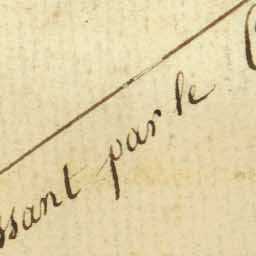 ssant par le